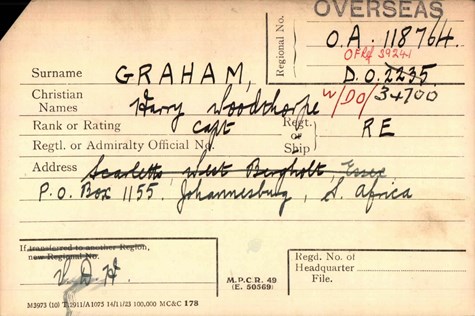 OVERSEAS
Regional No.
O.A. 118764.
OFR 39241
D.O. 2235.
W/DO/ 34700
Surname GRAHAM,
Christian Names Harry Woodthorpe
Rank or Rating Capt Regt. or Ship } RE
Regtl. or Admiralty Official No.
Address Scarletts West Bergholt, Essex
P.O. Box 1155. Johannesburg, S. Africa
If transferred to another Region, new Regional No.
Regd. No. of Headquarter File.
M.P.C.R. 49
(E. 50569)
M3973 (10) T2911/A1075 14/11/23 100,000 MC&C 178